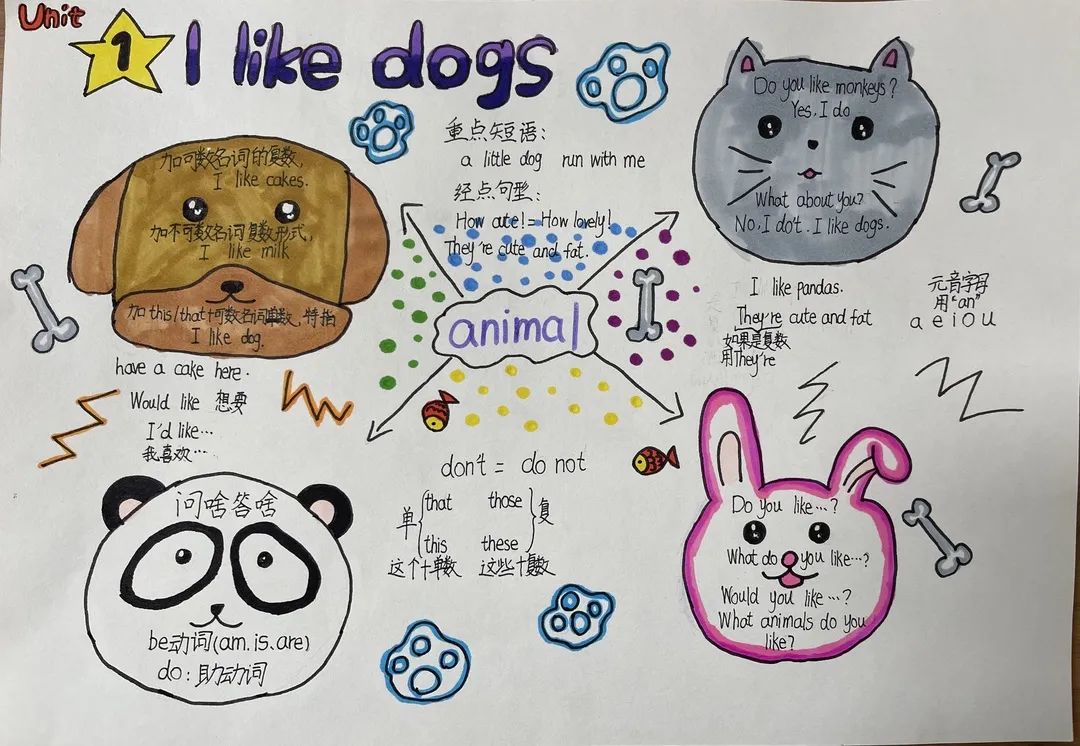 Unit
1 I like dogs
重点短语:
a little dog run with me
经点句型:
How cute! = How lovely!
They're cute and fat.
加可数名词的复数,
I like cakes.
加不可数名词复数形式,
I like milk
加 this/that+可数名词单数, 特指
I like dog.
have a cake here.
Would like 想要
I'd like…
我喜欢…
Do you like monkeys?
Yes, I do
What about you?
No, I do't. I like dogs.
I like pandas.
They're cute and fat
如果是复数
用They're
元音字母
用"an"
a e i o u
animal
问啥答啥
be动词(am.is.are)
do: 助动词
don't = do not
that those
单 复
this these
这个+单数 这些+复数
Do you like…?
What do you like…?
Would you like…?
What animals do you
like?